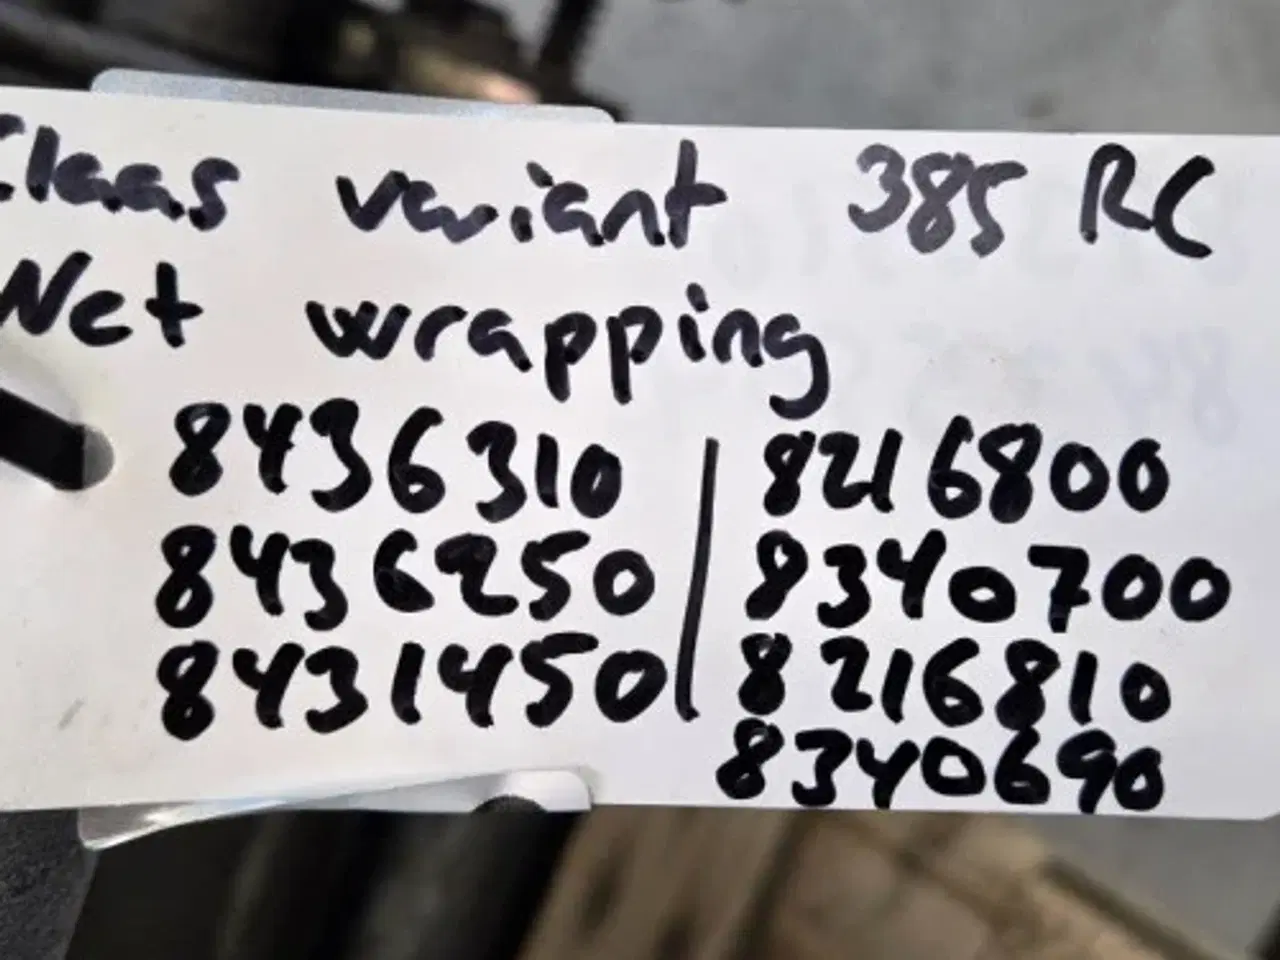 Claas variant 385 RC
Net wrapping
8436310 | 8216800
8436250 | 8340700
8431450 | 8216810
8340690